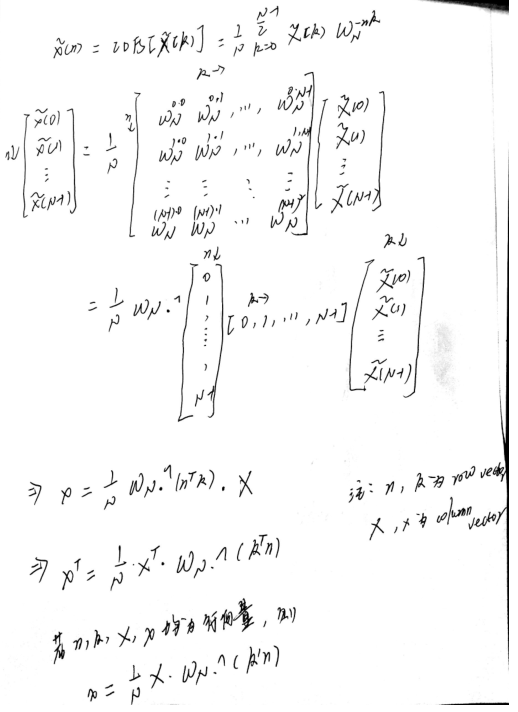 x̃(n) = IDFS[X̃(k)] = 1/N Σ_{k=0}^{N-1} X̃(k) W_N^{-nk}
k→
n↓ [x̃(0) x̃(1) ⋮ x̃(N-1)] = 1/N n↓ [W_N^{0·0} W_N^{0·1} , ... , W_N^{0·N-1}
W_N^{1·0} W_N^{1·1} , ... , W_N^{1·N-1}
⋮ ⋮ ⋮ ⋮
W_N^{(N-1)·0} W_N^{(N-1)·1} ... W_N^{(N-1)²}] [X̃(0) X̃(1) ⋮ X̃(N-1)]
n↓ k↓
= 1/N W_N.^ [0 1 , ⋮ , N-1] k→ [0, 1, ..., N-1] [X̃(0) X̃(1) ⋮ X̃(N-1)]
⇒ x = 1/N W_N.^(nᵀk) · X
注: n, k 为 row vector
X, x 为 column vector
⇒ xᵀ = 1/N · Xᵀ · W_N.^(kᵀn)
若 n, k, X, x 均为行向量, 则
x = 1/N X · W_N.^(k'n)